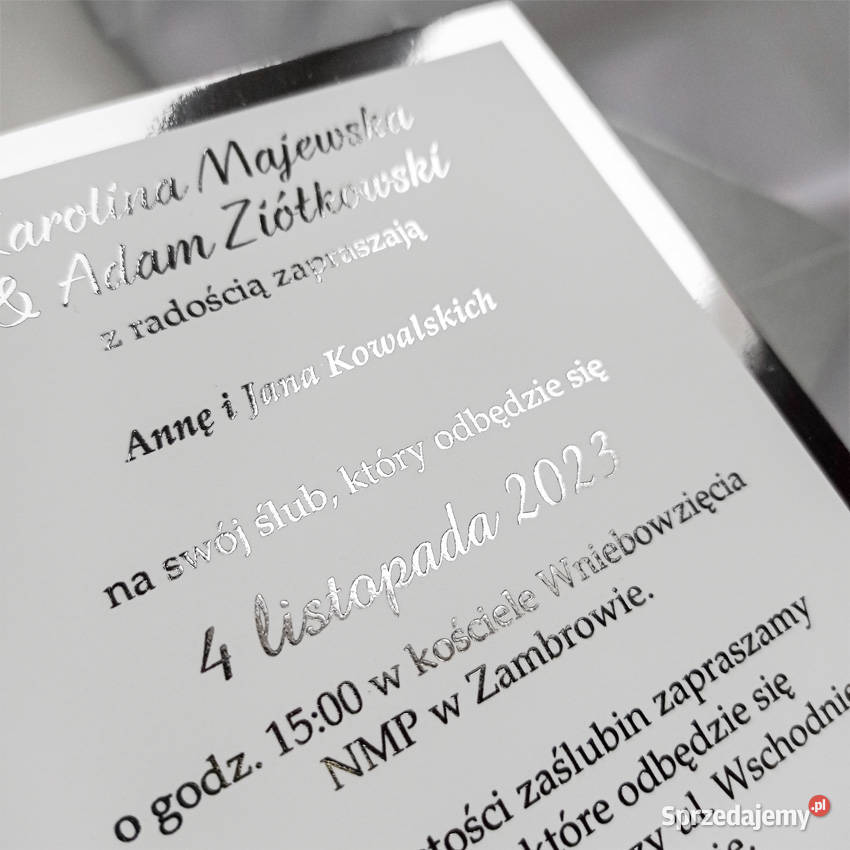 Karolina Majewska
& Adam Ziółkowski
z radością zapraszają
Annę i Jana Kowalskich
na swój ślub, który odbędzie się
4 listopada 2023
o godz. 15:00 w kościele Wniebowzięcia
NMP w Zambrowie.
zaślubin zapraszamy
które odbędzie się
ul. Wschodnie
Sprzedajemy.pl